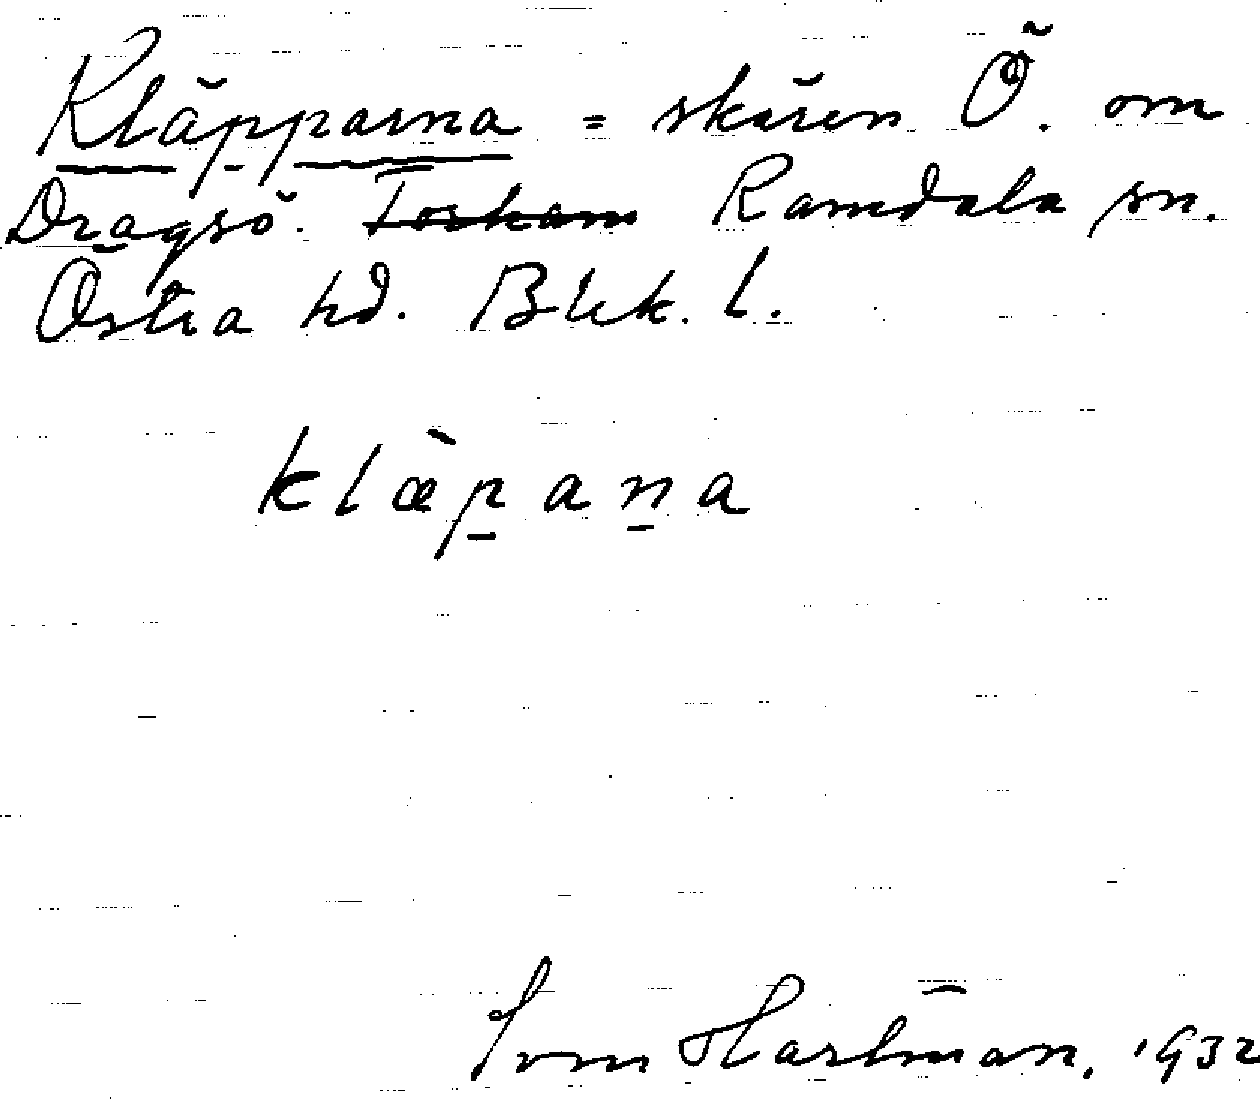 Kläpparna = skären Ö. om
Dragsö. Torham Ramdala sn.
Östra hd. Blek. l.
klæ̀pana
Hartman, 1932